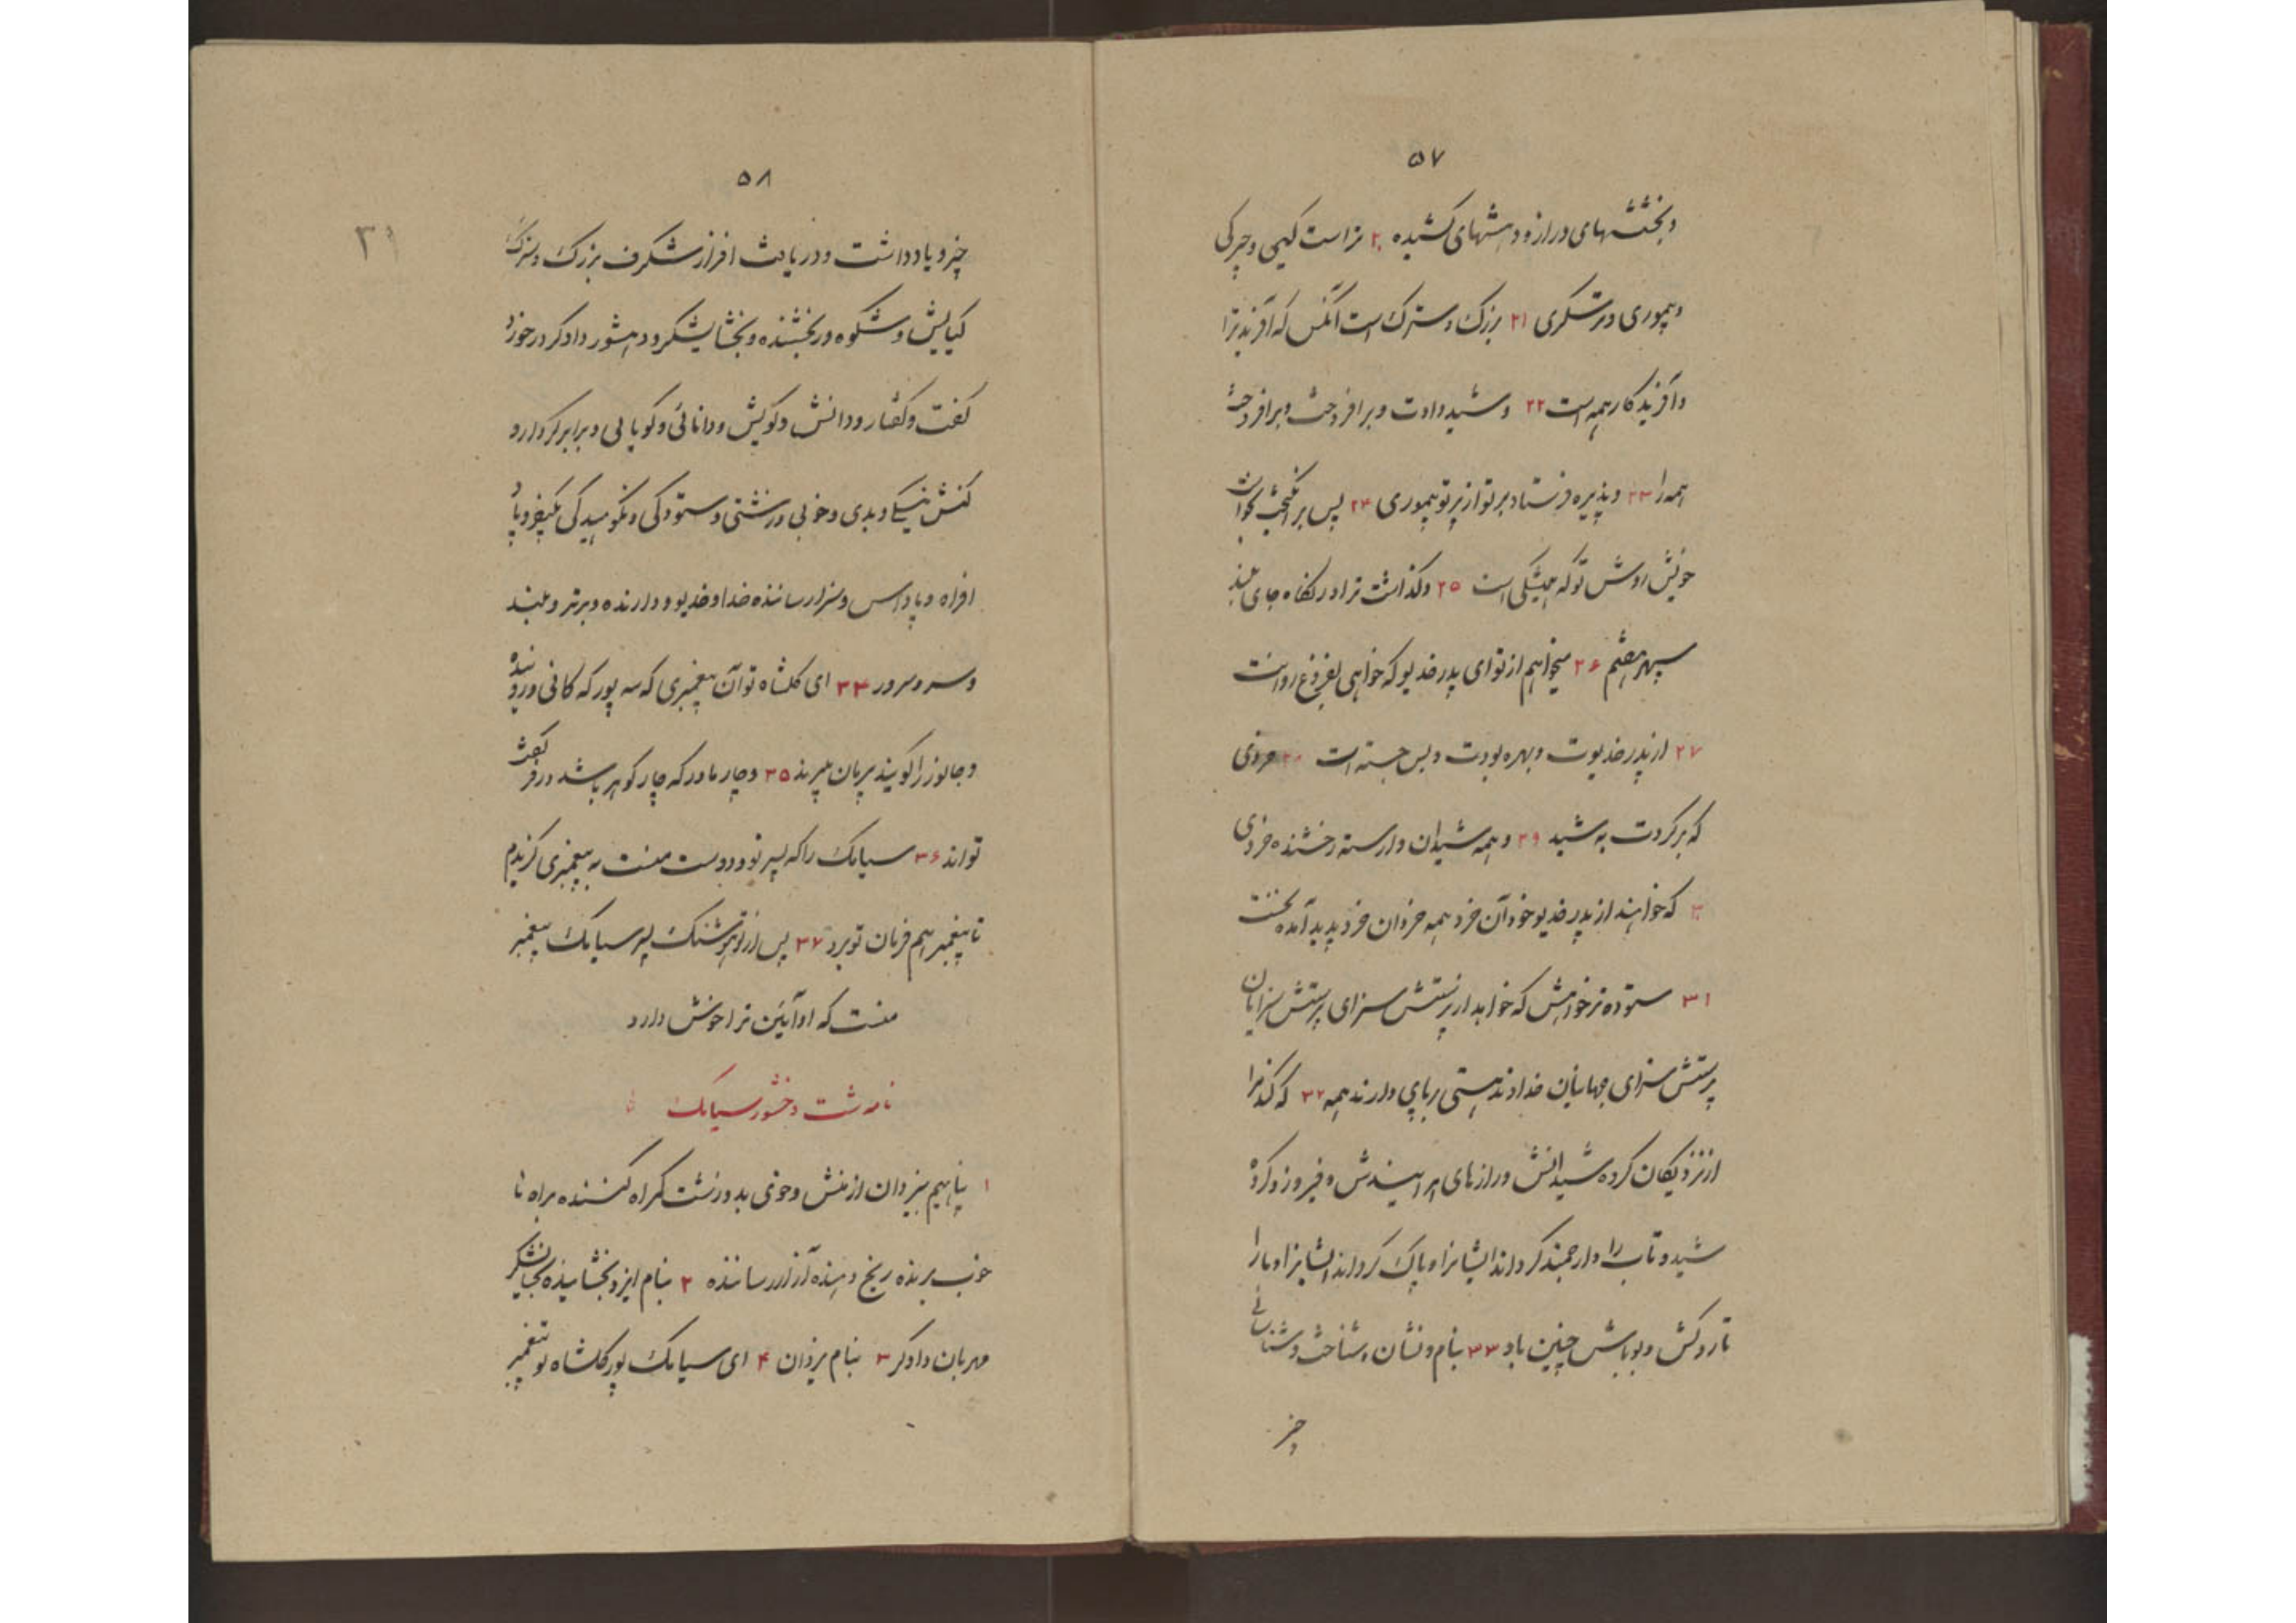 ۵۷
و بخششهای دراز و دهشهای کشیده ۲۰ تراست کیمی و چیرگی
و هموری و ترسکری ۲۱ بزرک و سترک است آنکس که آفرید ترا
و آفریدکار همه است ۲۲ و شید دادت و برافروخت و برافروخت
همه را ۲۳ و پذیره فرستاد بر تو از پرتو هموری ۲۴ پس برانگیخت بخواست
خویش روش تو که همیشگی است ۲۵ و گذاشت ترا در نگاه جای بلند
سپهر هفتم ۲۶ میخواهم از تو ای پدر خدیو که خواهی بفروغ روانت
۲۷ از پدر خدیوت و بهره بودت و بس جسته است ۲۸ خردی
که برکردت به شید ۲۹ و همه شیدان وارسته رخشنده خردی
۳۰ که خواهند از پدر خدیو خود آن خرد همه خردان خرد پدید آمده نخست
۳۱ ستوده تر خواهش که خواهد از پرستش سزای پرستش سزایان
پرستش سزای جهانیان خداوند هستی برپای دارنده همه ۳۲ که کند مرا
از نزدیکان کروه شیدانش و رازهای هراسیدش و فیروز و کرده
شید و تاب را و ارجمند کرداند ایشانرا و پاک کرداند ایشانرا و ما را
تا روکش و بوباش چنین باد ۳۳ بنام و نشان و شناخت و شناسائی
چیز
۵۸
۳۱
چیز و یادداشت و دریافت افراز شگرف بزرک و سترک
کیایش و شکوه ور بخشنده و بخشایشکر و دهشور دادکر در خورد
گفت و گفتار و دانش و گویش و دانائی و گویائی و برابر کردار و
کنش نیکی و بدی و خوبی و زشتی و ستودگی و نکوهیدگی بکیفر و باد
افراه و پاداس و سزا رساننده خدا و خدیو و دارنده و برتر و بلند
و سر و سرور ۳۴ ای کلشاه تو آن پیغمبری که سه پور که کانی و روینده
و جانور را گویند پریان میبرند ۳۵ و چار مادر که چار گوهر باشد در فر گفت
تواند ۳۶ سیامک را که پسر تو و دوست منست به پیغمبری گزیدم
تا پیغمبر هم فرمان تو برد ۳۷ پس از تو هوشنک پسر سیامک پیغمبر
منست که او آئین ترا خوش دارد
نامه شت وخشور سیامک
۱ پناهیم به یزدان از منش و خوی بد و زشت گمراه کننده براه نا
خوب برنده رنج دهنده آزار رساننده ۲ بنام ایزد بخشاینده بخشایشگر
مهربان دادگر ۳ بنام یزدان ۴ ای سیامک پور کلشاه تو پیغمبر